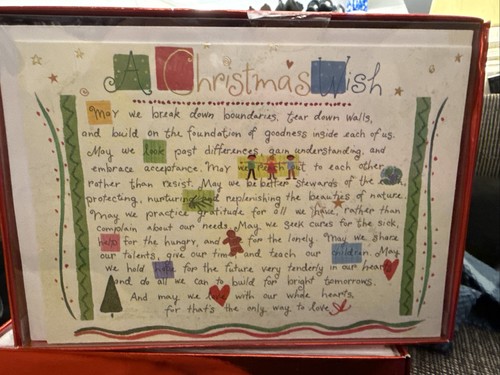 A Christmas Wish
May we break down boundaries, tear down walls,
and build on the foundation of goodness inside each of us.
May we look past differences, gain understanding, and
embrace acceptance. May we reach out to each other
rather than resist. May we be better stewards of the
protecting, nurturing and replenishing the beauties of nature.
May we practice gratitude for all we have, rather than
complain about our needs. May we seek cures for the sick,
help for the hungry, and for the lonely. May we share
our talents, give our time and teach our children. May
we hold hope for the future very tenderly in our hearts
and do all we can to build for bright tomorrows.
And may we love with our whole hearts,
for that's the only way to love.